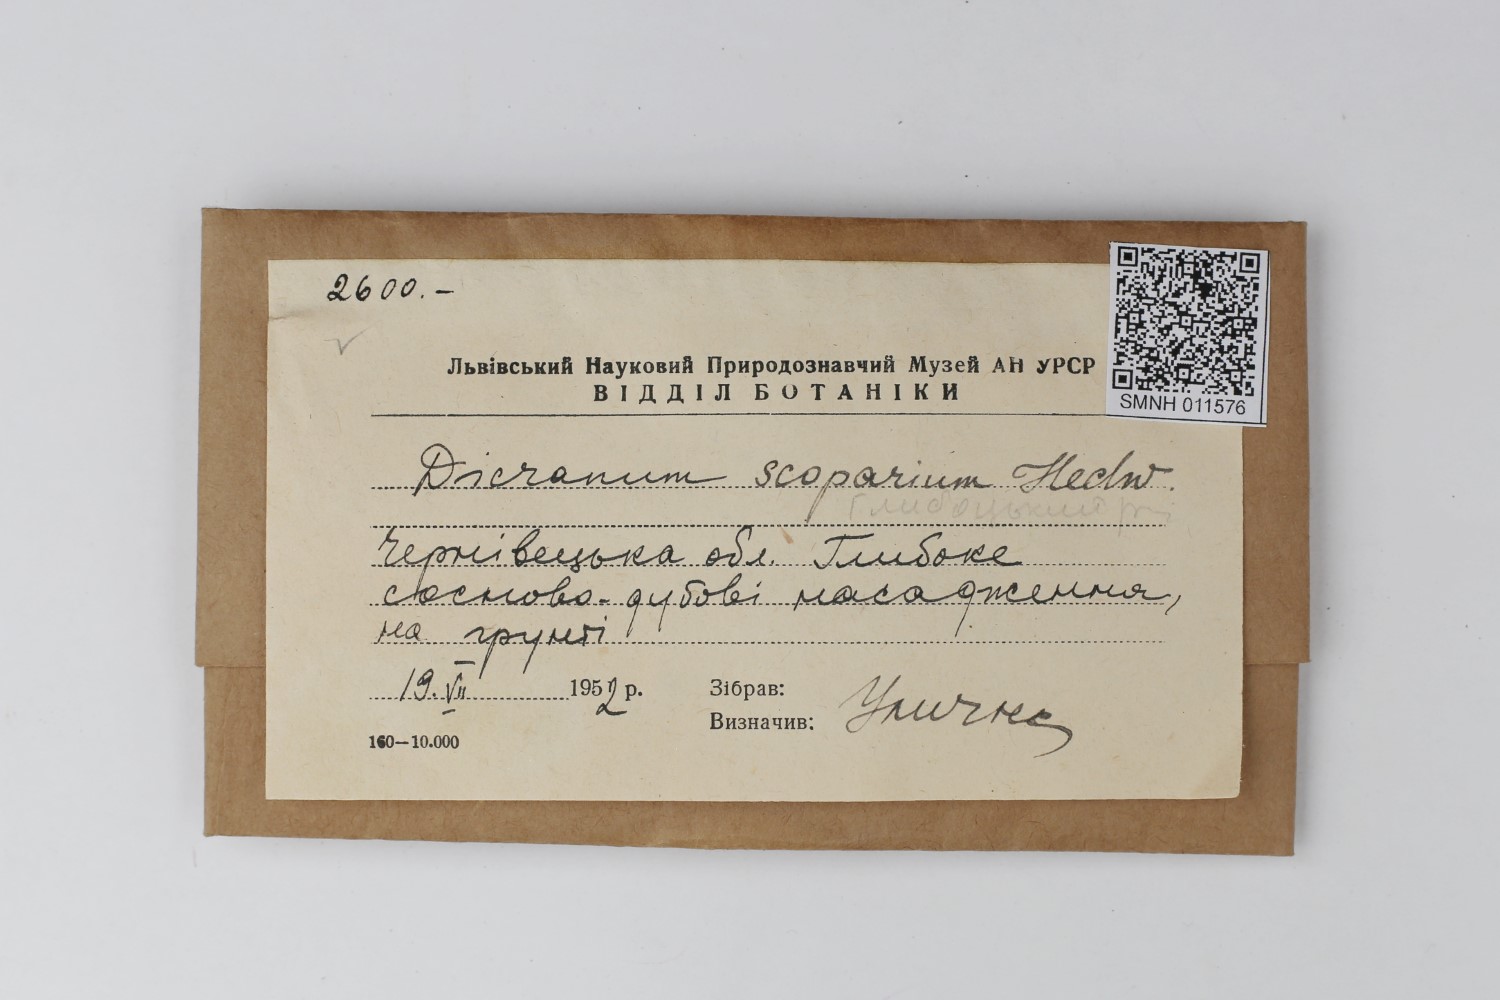 2600.-
Львівський Науковий Природознавчий Музей АН УРСР
ВІДДІЛ БОТАНІКИ
SMNH 011576
Dicranum scoparium Hedw.
Глибоцький р-н
Чернівецька обл. Глибоке
сосново-дубові насадження,
на грунті
19.VII 1952 р.
Зібрав:
Визначив: Уличка
160—10.000